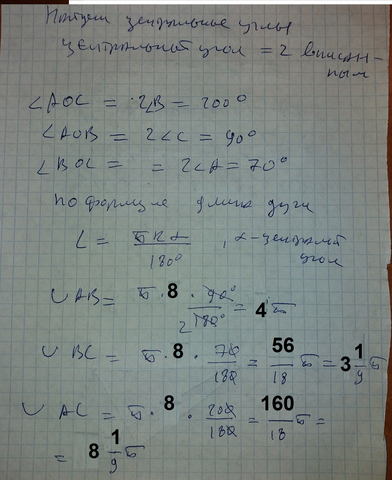 Найдем центральные углы
центральный угол = 2 вписан-
ным
∠AOC = 2∠B = 200°
∠AOB = 2∠C = 90°
∠BOC = = 2∠A = 70°
по формуле длина дуги
L = πRα / 180° , α - централь угол
∪ AB = π · 8 · 90° / 180° 2 = 4π
∪ BC = π · 8 · 70 / 180 = 56 / 18 π = 3 1/9 π
∪ AC = π · 8 · 200 / 180 = 160 / 18 π =
= 8 1/9 π